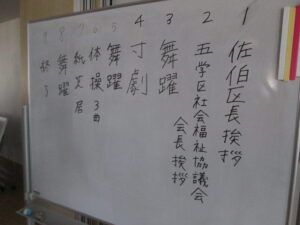 1 佐伯区長挨拶
2 五学区社会福祉協議会
会長挨拶
3 舞躍
4 寸劇
5 舞躍
6 体操3曲
7 紙芝居
8 舞躍
9 終了